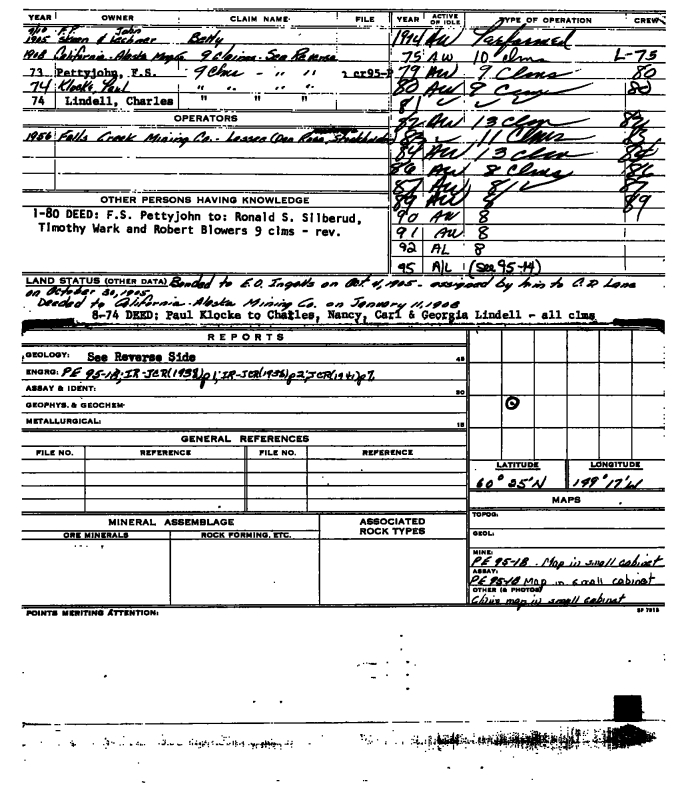 YEAR OWNER CLAIM NAME FILE
F.P. John
1905 & Lechner Betty
1908 California-Alaska 9 Claims - See Reverse
73 Pettyjohn, F.S. 9 Clms - " "
74 Klocke, Paul " " " "
74 Lindell, Charles " " "
OPERATORS
1956 Falls Creek Mining Co. - Lessee (Don Ross,
OTHER PERSONS HAVING KNOWLEDGE
1-80 DEED: F.S. Pettyjohn to: Ronald S. Silberud,
Timothy Wark and Robert Blowers 9 clms - rev.
YEAR ACTIVE OF IDLE TYPE OF OPERATION CREW
1974 AW Performed
75 AW 10 clms L-75
79 AW 9 Clms 80
80 AW 9 80
81 ✓ ✓
82 AW 13 Clm
83 11 Clms 83
84 AW 13 clm 84
86 AW 8 Clms 86
87 AW 8 ✓ 87
89 AW 89
90 AW 8
91 AW 8
92 AL 8
95 A/L (See 95-14)
LAND STATUS (OTHER DATA) Bonded to E.O. Ingalls on Oct 4, 1905 - assigned by him to C.D Lane
on October 30, 1905.
Deeded to California-Alaska Mining Co. on January 11, 1908
8-74 DEED: Paul Klocke to Charles, Nancy, Carl & Georgia Lindell - all clms
REPORTS
GEOLOGY: See Reverse Side 45
ENGRG: PE 95-18; IR-JCR(1938)p1; IR-JCR(1938)p2; JCR(1941)p7,
ASSAY & IDENT: 30
GEOPHYS. & GEOCHEM-
METALLURGICAL: 15
GENERAL REFERENCES
FILE NO. REFERENCE FILE NO. REFERENCE
LATITUDE LONGITUDE
60° 25'N 149° 17'W
MINERAL ASSEMBLAGE ASSOCIATED ROCK TYPES
ORE MINERALS ROCK FORMING, ETC.
MAPS
TOPOG:
GEOL:
MINE:
PE 95-18 - Map in small cabinet
ASSAY:
PE 95-18 Map in small cabinet
OTHER (& PHOTOS)
Claim map in small cabinet
POINTS MERITING ATTENTION: